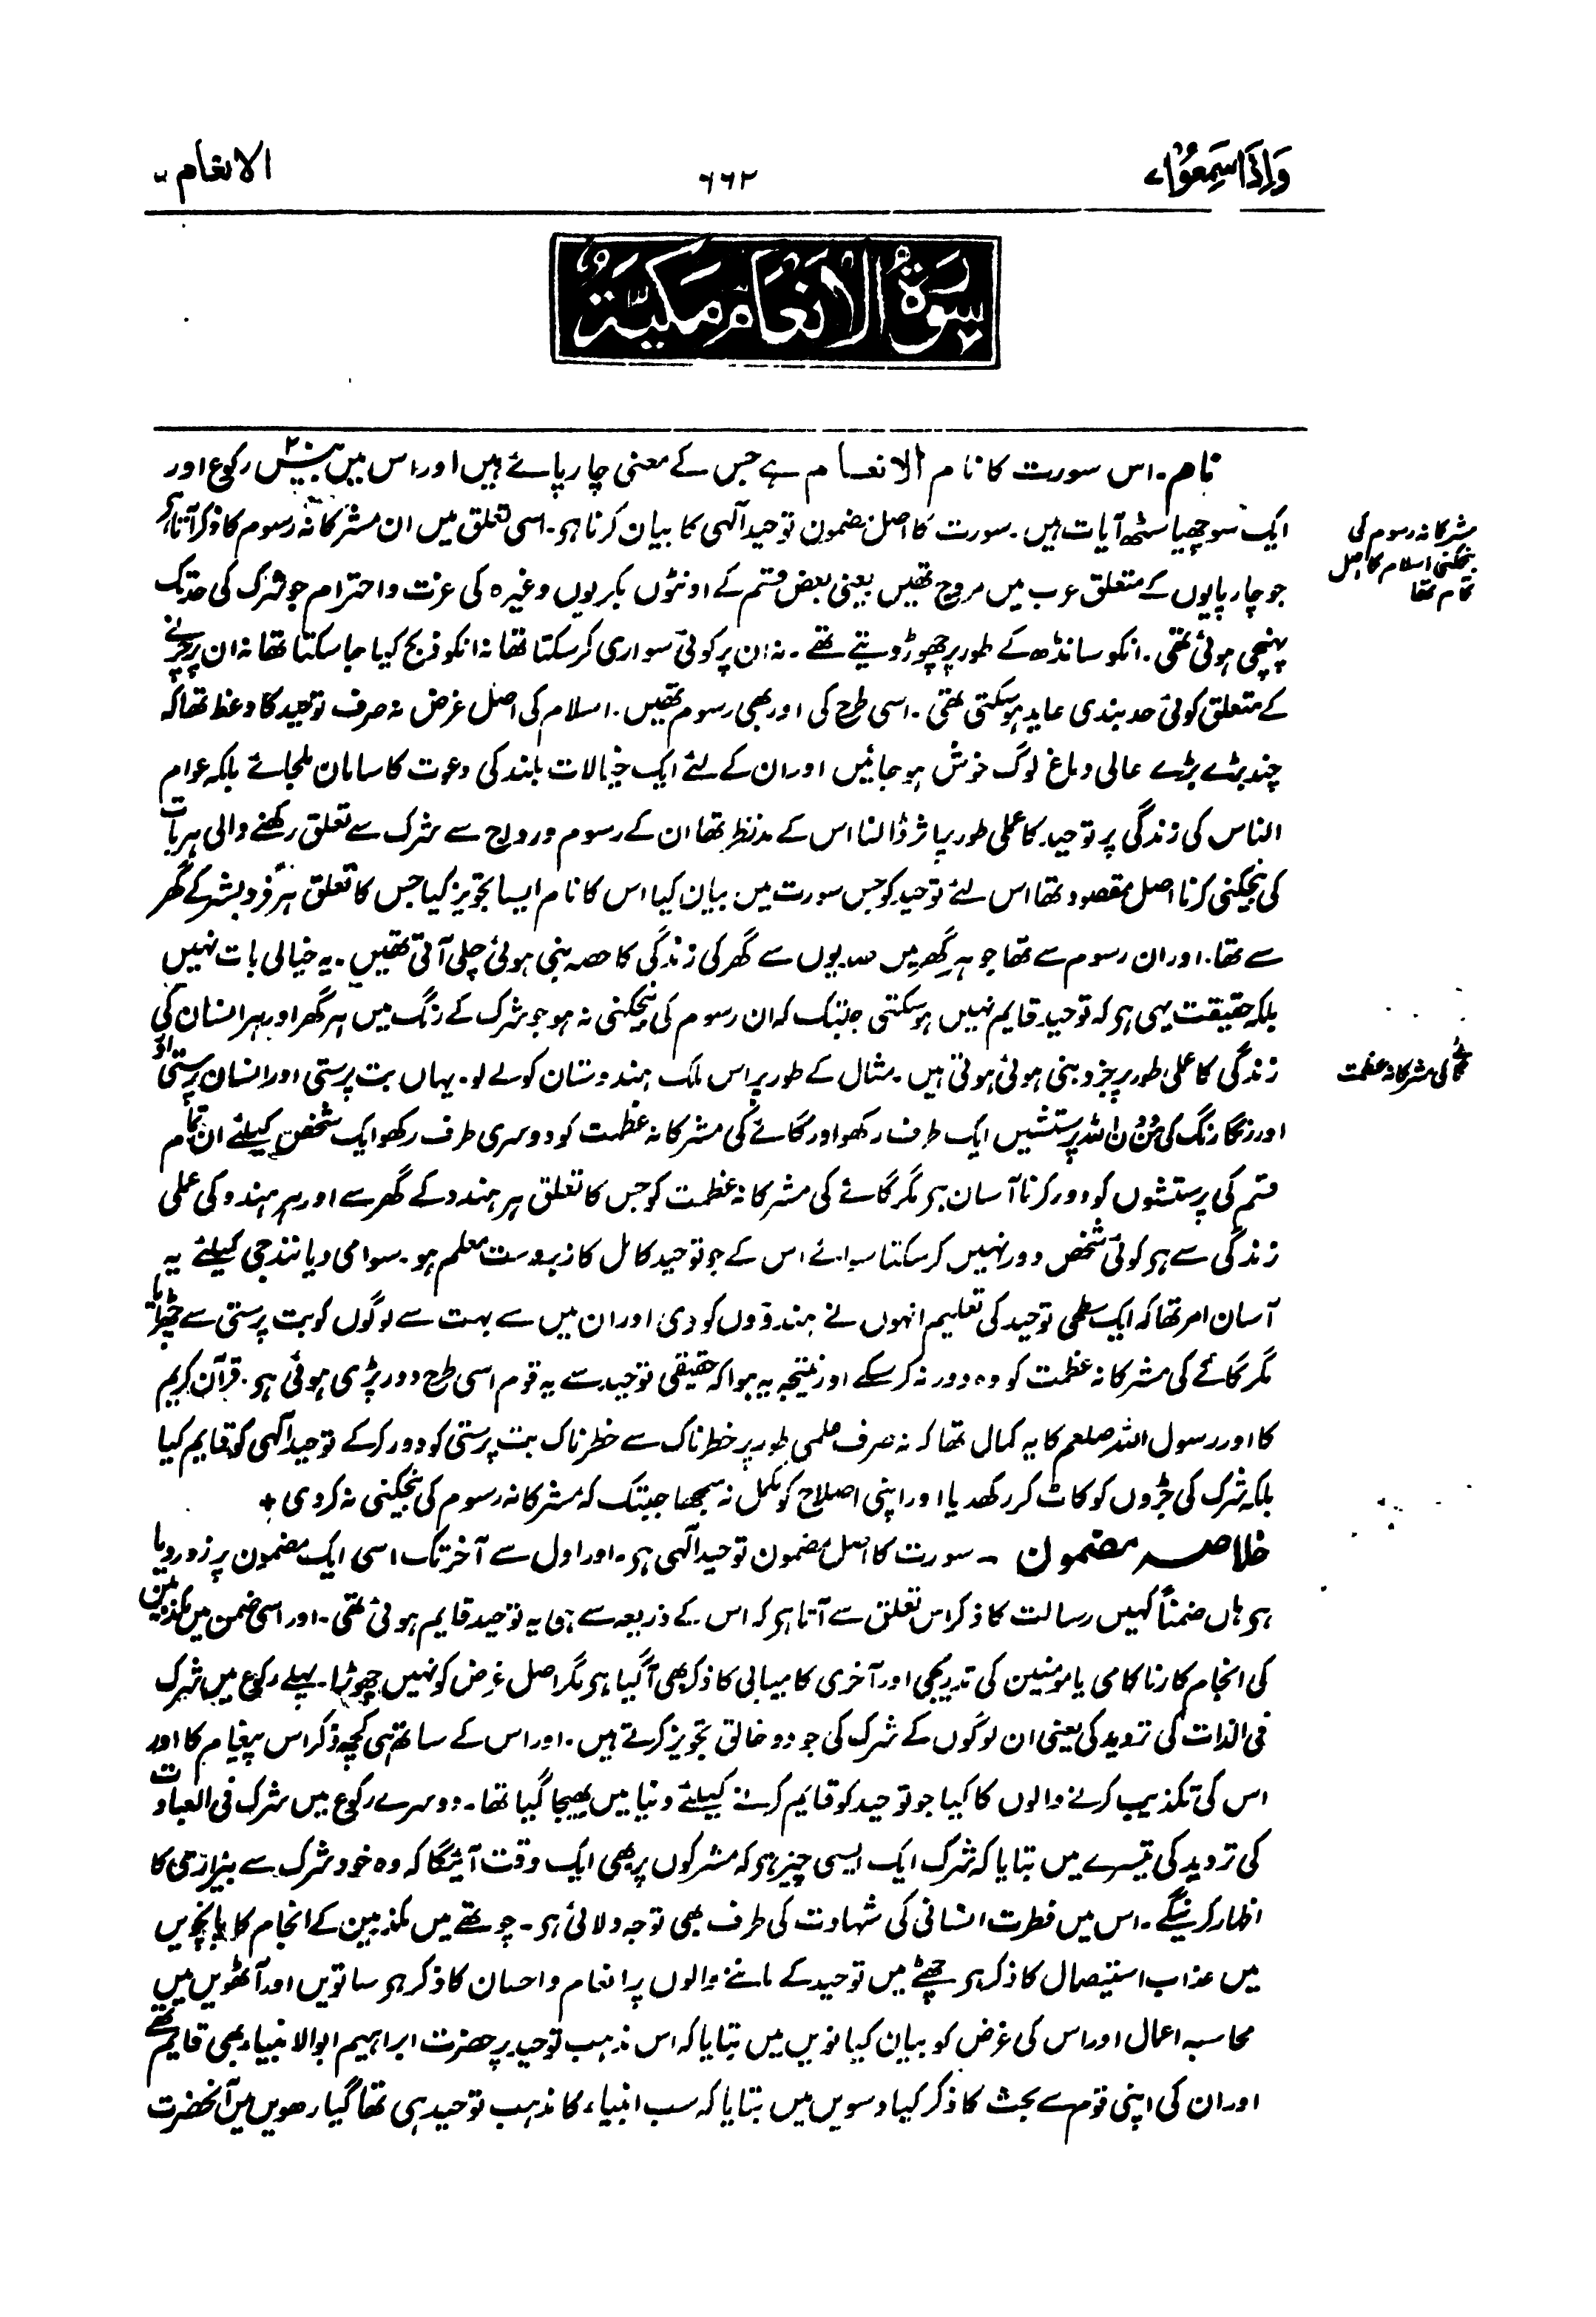 وَاِذَا سَمِعُوْا ۷
۶۶۲
الانعام ۶
سُوْرَةُ الْاَنْعَامِ مَكِّيَّةٌ
نام۔ اس سورت کا نام الانعام ہے جس کے معنی چارپائے ہیں اور اس میں بیس ۲۰ رکوع اور
ایک سو چھیاسٹھ آیات ہیں۔ سورت کا اصل مضمون توحید الٰہی کا بیان کرنا ہی۔ اسی تعلق میں ان مشرکانہ رسوم کا ذکر آتا ہی
مشرکانہ رسوم کی
بیخکنی اسلام کا اصل
کام تھا
جو چارپایوں کے متعلق عرب میں مروج تھیں یعنی بعض قسم کے اونٹوں بکریوں وغیرہ کی عزت و احترام جو شرک کی حد تک
پہنچی ہوئی تھی۔ انکو سانڈھ کے طور پر چھوڑ دیتے تھے۔ نہ ان پر کوئی سواری کر سکتا تھا نہ انکو ذبح کیا جا سکتا تھا نہ ان پر چرنے
کے متعلق کوئی حد بندی عاید ہو سکتی تھی۔ اسی طرح کی اور بھی رسوم تھیں۔ اسلام کی اصل غرض نہ صرف توحید کا وعظ تھا کہ
چند بڑے بڑے عالی دماغ لوگ خوش ہو جائیں اور ان کے لئے ایک خیالات بلند کی دعوت کا سامان ملجائے بلکہ عوام
الناس کی زندگی پر توحید کا عملی طور پر اثر ڈالنا اس کے مدنظر تھا ان کے رسوم و رواج سے شرک سے تعلق رکھنے والی ہر بات
کی بیخکنی کرنا اصل مقصود تھا اس لئے توحید کو جس سورت میں بیان کیا اس کا نام ایسا تجویز کیا جس کا تعلق ہر فرد بشر کے گھر
سے تھا۔ اور ان رسوم سے تھا جو ہر گھر میں صدیوں سے گھر کی زندگی کا حصہ بنی ہوئی چلی آتی تھیں۔ یہ خیالی بات نہیں
بلکہ حقیقت یہی ہی کہ توحید قایم نہیں ہو سکتی جبتک کہ ان رسوم کی بیخکنی نہ ہو جو شرک کے رنگ میں ہر گھر اور ہر انسان کی
زندگی کا عملی طور پر جزو بنی ہوئی ہوتی ہیں۔ مثال کے طور پر اس ملک ہندوستان کو لے لو۔ یہاں بت پرستی اور انسان پرستی اور
گائے کی مشرکانہ عظمت
اور رنگا رنگ کی من دون اللہ پرستشیں ایک طرف رکھو اور گائے کی مشرکانہ عظمت کو دوسری طرف رکھو ایک شخص کیلئے ان تمام
قسم کی پرستشوں کو دور کرنا آسان ہی مگر گائے کی مشرکانہ عظمت کو جس کا تعلق ہر ہندو کے گھر سے اور ہر ہندو کی عملی
زندگی سے ہی کوئی شخص دور نہیں کر سکتا سوائے اس کے جو توحید کامل کا زبردست معلم ہو۔ سوامی دیانند جی کیلئے یہ
آسان امر تھا کہ ایک سطحی توحید کی تعلیم انہوں نے ہندوؤں کو دی اور ان میں سے بہت سے لوگوں کو بت پرستی سے چھڑایا
مگر گائے کی مشرکانہ عظمت کو وہ دور نہ کر سکے اور نتیجہ یہ ہوا کہ حقیقی توحید سے یہ قوم اسی طرح دور پڑی ہوئی ہی۔ قرآن کریم
کا اور رسول اللہ صلعم کا یہ کمال تھا کہ نہ صرف علمی طور پر خطرناک سے خطرناک بت پرستی کو دور کر کے توحید الٰہی کو قایم کیا
بلکہ شرک کی جڑوں کو کاٹ کر رکھدیا اور اپنی اصلاح کو مکمل نہ سمجھا جبتک کہ مشرکانہ رسوم کی بیخکنی نہ کر دی +
خلاصہ مضمون ۔ سورت کا اصل مضمون توحید الٰہی ہی۔ اور اول سے آخر تک اسی ایک مضمون پر زور دیا
ہی ہاں ضمناً کہیں رسالت کا ذکر اس تعلق سے آتا ہی کہ اس کے ذریعہ سے ہی یہ توحید قایم ہوئی تھی۔ اور اسی ضمن میں مکذبین
کی انجام کار ناکامی یا مومنین کی تدریجی اور آخری کامیابی کا ذکر بھی آگیا ہی مگر اصل غرض کو نہیں چھوڑا۔ پہلے رکوع میں شرک
فی الذات کی تردید کی یعنی ان لوگوں کے شرک کی جو دو خالق تجویز کرتے ہیں۔ اور اس کے ساتھ ہی کچھ ذکر اس پیغام کا اور
اس کی تکذیب کرنے والوں کا کیا جو توحید کو قایم کرنے کیلئے دنیا میں بھیجا گیا تھا۔ دوسرے رکوع میں شرک فی العبادت
کی تردید کی تیسرے میں بتایا کہ شرک ایک ایسی چیز ہی کہ مشرکوں پر بھی ایک وقت آئیگا کہ وہ خود شرک سے بیزاری کا
اظہار کرینگے۔ اس میں فطرت انسانی کی شہادت کی طرف بھی توجہ دلائی ہی۔ چوتھے میں مکذبین کے انجام کا پانچویں
میں عذاب استیصال کا ذکر ہی چھٹے میں توحید کے ماننے والوں پر انعام و احسان کا ذکر ہی ساتویں اور آٹھویں میں
محاسبہ اعمال اور اس کی غرض کو بیان کیا نویں میں بتایا کہ اس مذہب توحید پر حضرت ابراہیم ابوالانبیاء بھی قایم تھے
اور ان کی اپنی قوم سے بحث کا ذکر کیا دسویں میں بتایا کہ سب انبیاء کا مذہب توحید ہی تھا گیارھویں میں آنحضرت